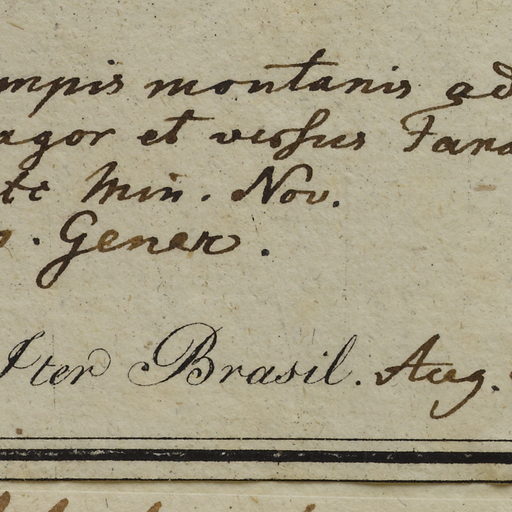 mpis montanis ad
agor et versus Tana
te Min. Nov.
. Gener.
Iter Brasil. Aug.